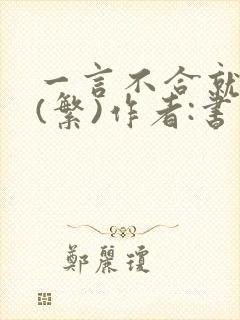 一言不合就
(繁)作者:書
鄭麗瓊